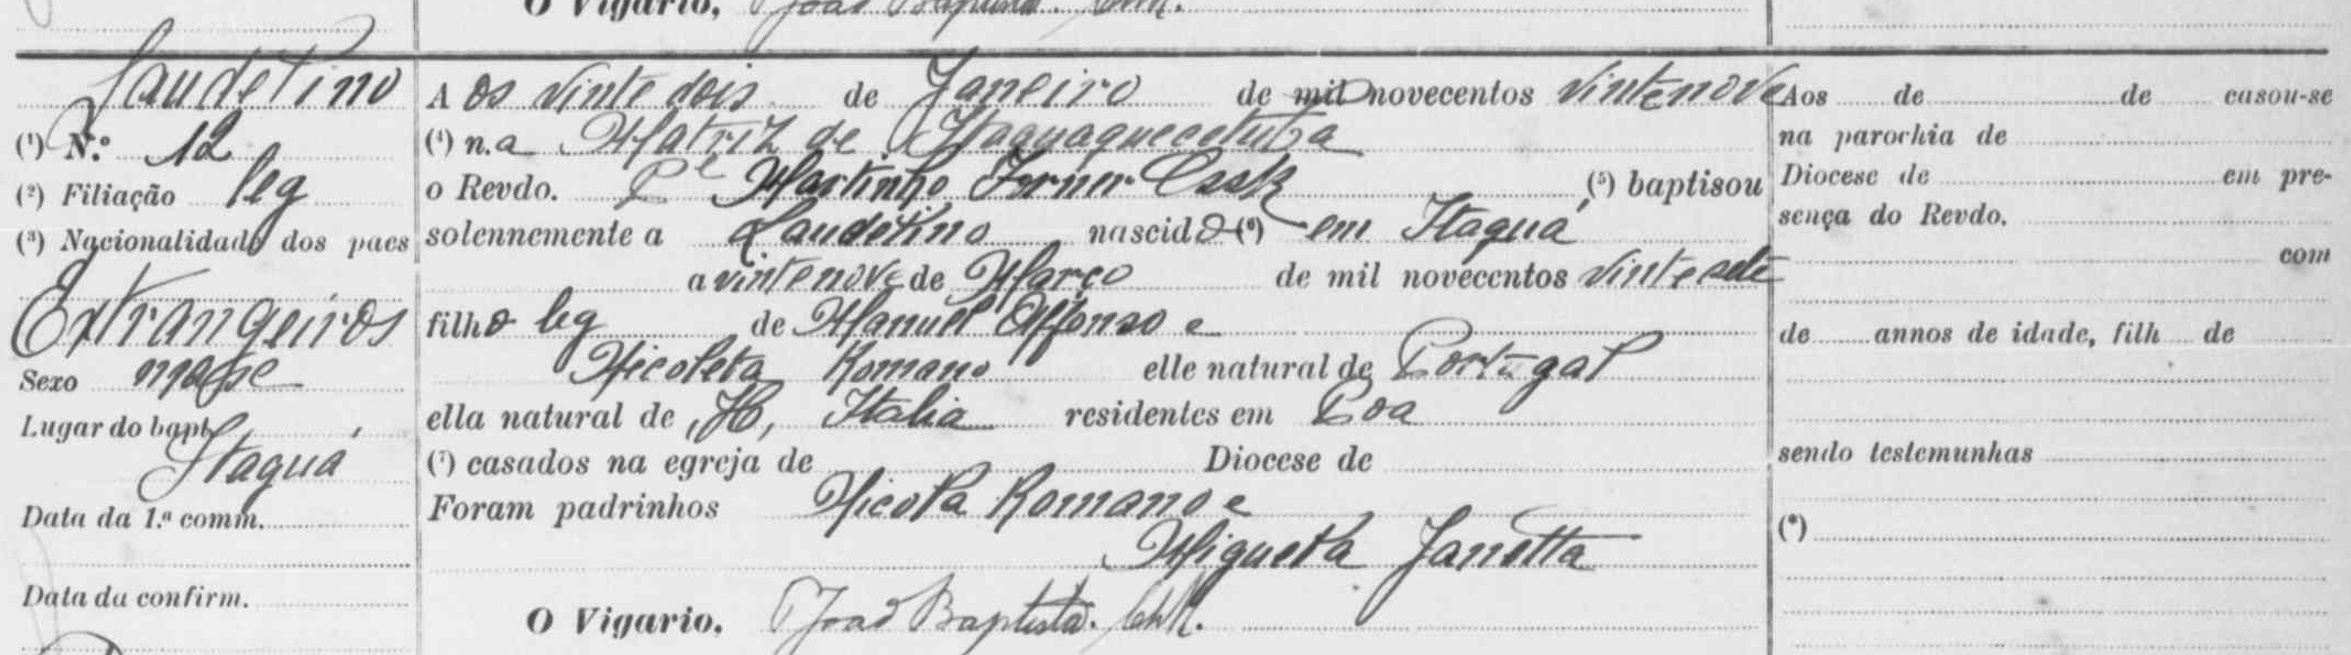 O Vigario, João Baptista.
Laudelino
(¹) N.º 12
(²) Filiação leg
(³) Nacionalidade dos paes
Extrangeiros
Sexo masc
Lugar do bapt.
Itaquá
Data da 1.ª comm.
Data da confirm.
A os vinte dois de Janeiro de mil novecentos vintenove
(⁴) n.a Matriz de Itaquaquecetuba
o Revdo. Pe Martinho Forner (⁵) baptisou
solennemente a Laudelino nascido (⁶) em Itaquá,
a vintenove de Março de mil novecentos vintesete
filho leg de Manuel Affonso e
Nicoleta Romano elle natural de Portugal
ella natural de Italia residentes em Poa
(⁷) casados na egreja de Diocese de
Foram padrinhos Nicola Romano e
Miguela Janotta
O Vigario, João Baptista.
Aos de de casou-se
na parochia de
Diocese de em pre-
sença do Revdo.
com
de annos de idade, filh de
sendo testemunhas
(⁸)